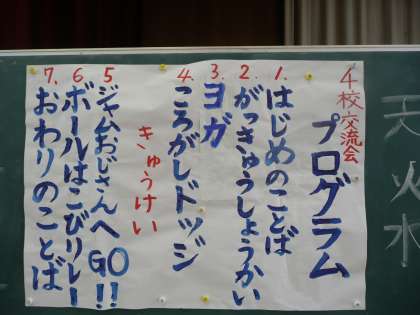 4校交流会
プログラム
1. はじめのことば
2. がっきゅうしょうかい
3. ヨガ
4. ころがしドッジ
きゅうけい
5 ジャムおじさんへGO!!
6. ボールはこびリレー
7. おわりのことば
天
火
水